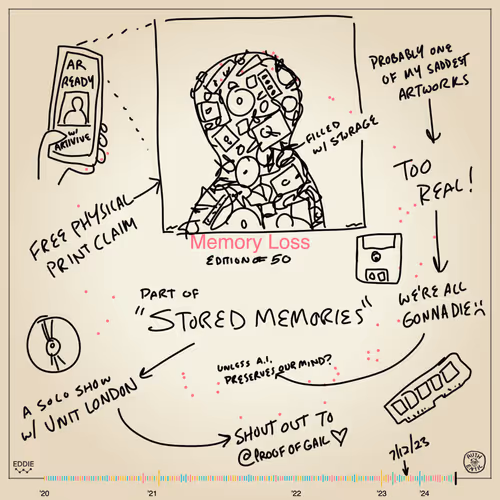 AR
READY
W/
ARTIVIVE
PROBABLY ONE
OF MY SADDEST
ARTWORKS
FILLED
W/ STORAGE
TOO
REAL!
FREE PHYSICAL
PRINT CLAIM
Memory Loss
EDITION OF 50
PART OF
"STORED MEMORIES"
WE'RE ALL
GONNA DIE
UNLESS A.I.
PRESERVES OUR MIND?
A SOLO SHOW
W/ UNIT LONDON
SHOUT OUT TO
@PROOFOFGAIL
7/12/23
EDDIE
'20 '21 '22 '23 '24